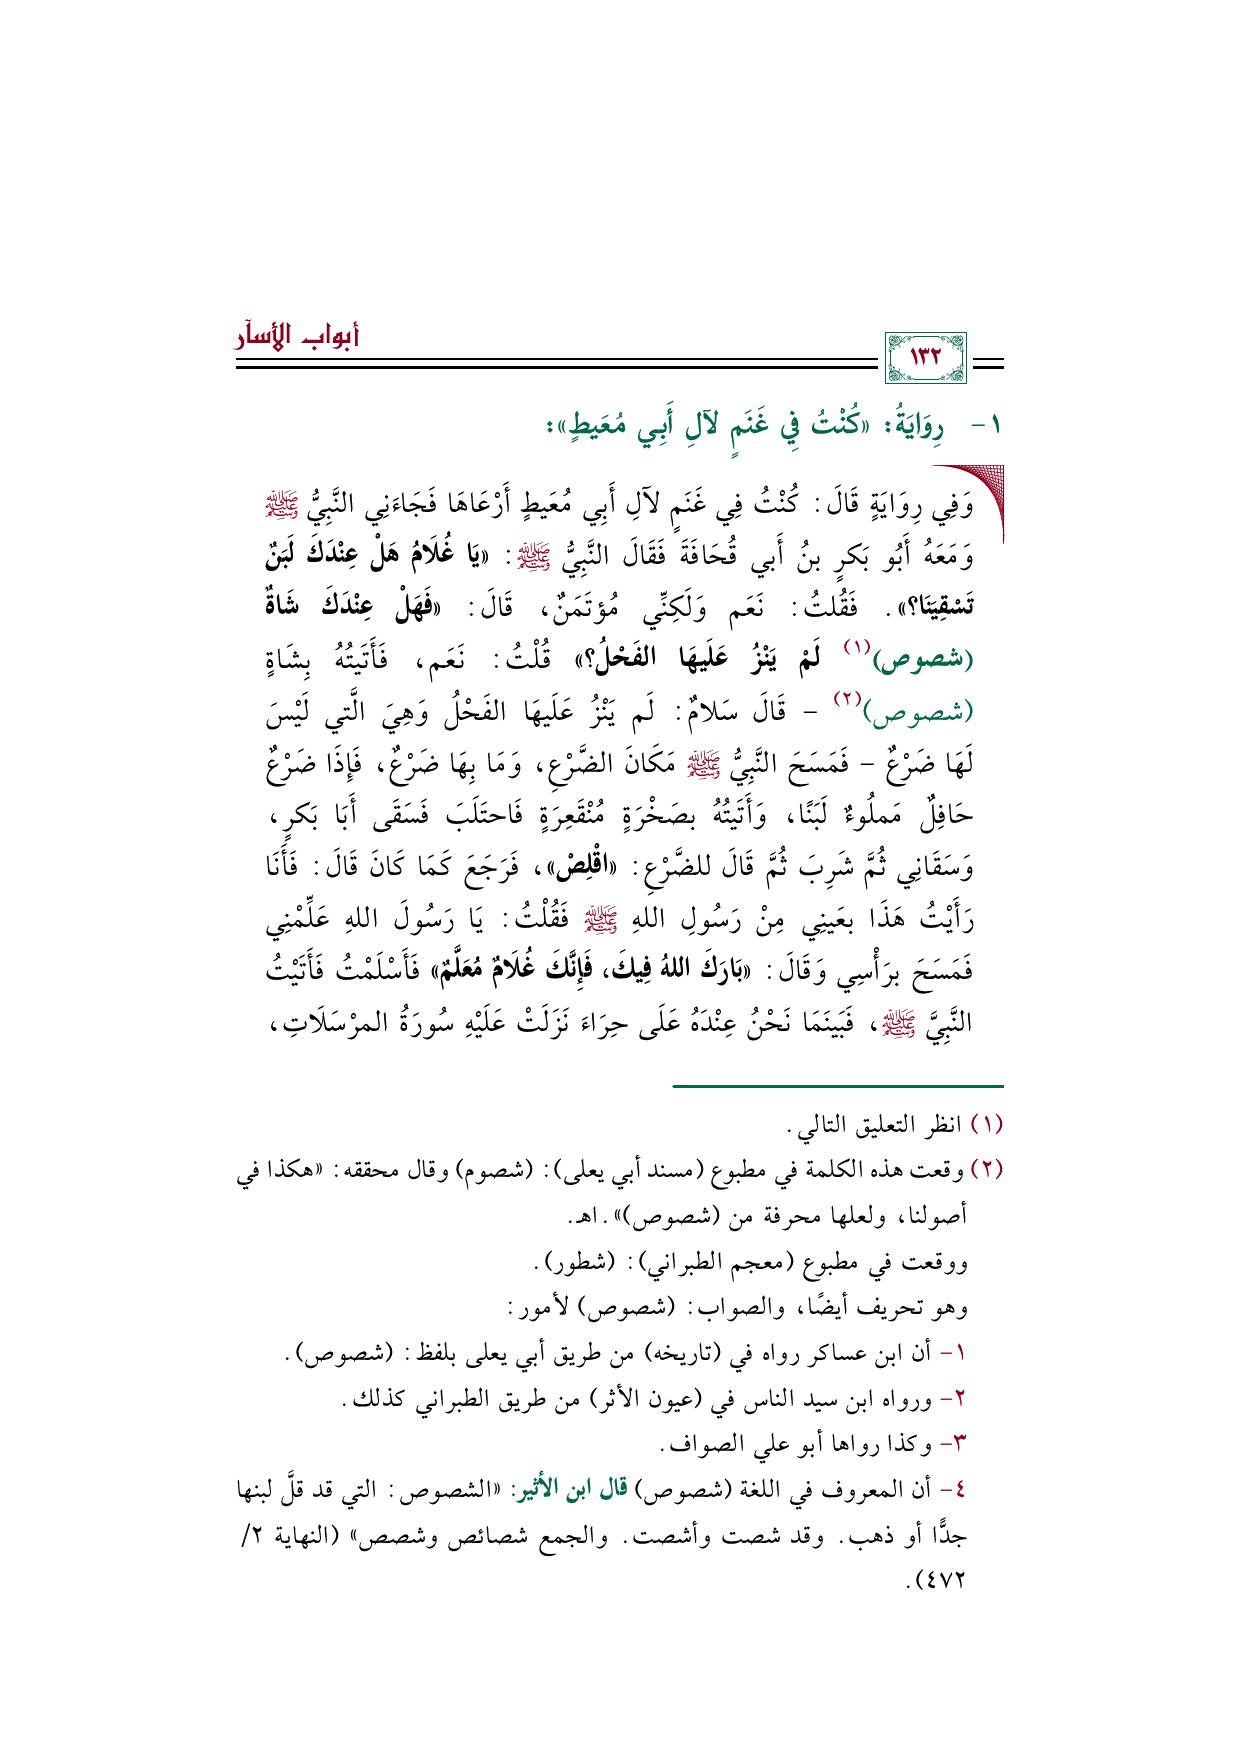 أبواب الأسآر
١٣٢
١- رِوَايَةُ: «كُنْتُ فِي غَنَمٍ لآلِ أَبِي مُعَيطٍ»:
وَفِي رِوَايَةٍ قَالَ: كُنْتُ فِي غَنَمٍ لآلِ أَبِي مُعَيطٍ أَرْعَاهَا فَجَاءَنِي النَّبِيُّ ﷺ
وَمَعَهُ أَبُو بَكرٍ بنُ أَبي قُحَافَةَ فَقَالَ النَّبِيُّ ﷺ: «يَا غُلَامُ هَلْ عِنْدَكَ لَبَنٌ
تَسْقِيَنَا؟». فَقُلتُ: نَعَم وَلَكِنِّي مُؤتَمَنٌ، قَالَ: «فَهَلْ عِنْدَكَ شَاةٌ
(شصوص)(١) لَمْ يَنْزُ عَلَيهَا الفَحْلُ؟» قُلْتُ: نَعَم، فَأَتَيتُهُ بِشَاةٍ
(شصوص)(٢) – قَالَ سَلامٌ: لَم يَنْزُ عَلَيهَا الفَحْلُ وَهِيَ الَّتي لَيْسَ
لَهَا ضَرْعٌ – فَمَسَحَ النَّبِيُّ ﷺ مَكَانَ الضَّرْعِ، وَمَا بِهَا ضَرْعٌ، فَإِذَا ضَرْعٌ
حَافِلٌ مَملُوءٌ لَبَنًا، وَأَتَيتُهُ بصَخْرَةٍ مُنْقَعِرَةٍ فَاحتَلَبَ فَسَقَى أَبَا بَكرٍ،
وَسَقَانِي ثُمَّ شَرِبَ ثُمَّ قَالَ للضَّرْعِ: «اقْلِصْ»، فَرَجَعَ كَمَا كَانَ قَالَ: فَأَنَا
رَأَيْتُ هَذَا بعَينِي مِنْ رَسُولِ اللهِ ﷺ فَقُلْتُ: يَا رَسُولَ اللهِ عَلِّمْنِي
فَمَسَحَ برَأْسِي وَقَالَ: «بَارَكَ اللهُ فِيكَ، فَإِنَّكَ غُلَامٌ مُعَلَّمٌ» فَأَسْلَمْتُ فَأَتَيْتُ
النَّبِيَّ ﷺ، فَبَينَمَا نَحْنُ عِنْدَهُ عَلَى حِرَاءَ نَزَلَتْ عَلَيْهِ سُورَةُ المرْسَلَاتِ،
(١) انظر التعليق التالي.
(٢) وقعت هذه الكلمة في مطبوع (مسند أبي يعلى): (شصوم) وقال محققه: «هكذا في
أصولنا، ولعلها محرفة من (شصوص)».اهـ.
ووقعت في مطبوع (معجم الطبراني): (شطور).
وهو تحريف أيضًا، والصواب: (شصوص) لأمور:
١- أن ابن عساكر رواه في (تاريخه) من طريق أبي يعلى بلفظ: (شصوص).
٢- ورواه ابن سيد الناس في (عيون الأثر) من طريق الطبراني كذلك.
٣- وكذا رواها أبو علي الصواف.
٤- أن المعروف في اللغة (شصوص) قال ابن الأثير: «الشصوص: التي قد قلَّ لبنها
جدًّا أو ذهب. وقد شصت وأشصت. والجمع شصائص وشصص» (النهاية ٢/
٤٧٢).